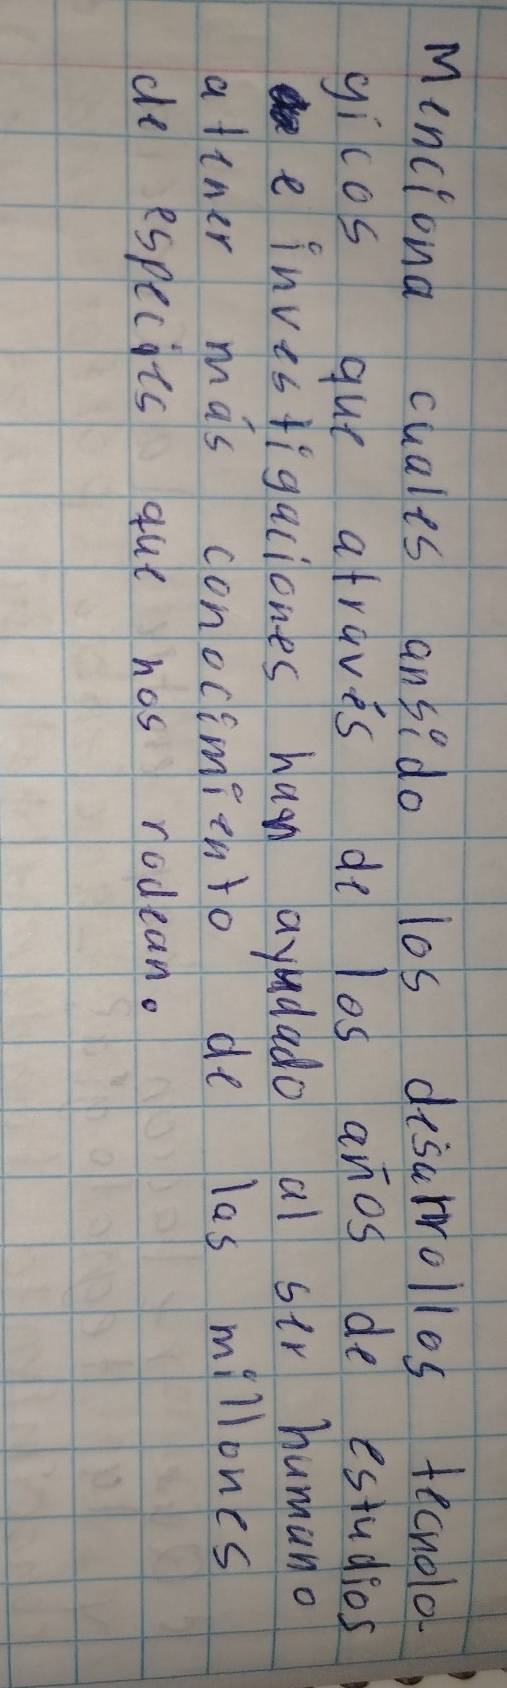 Menciona cuales ansido los desarrollos tecnolo-
gicos que através de los años de estudios
e investigaciones han ayudado al ser humano
a tener más conocimiento de las millones
de especies que nos rodean.